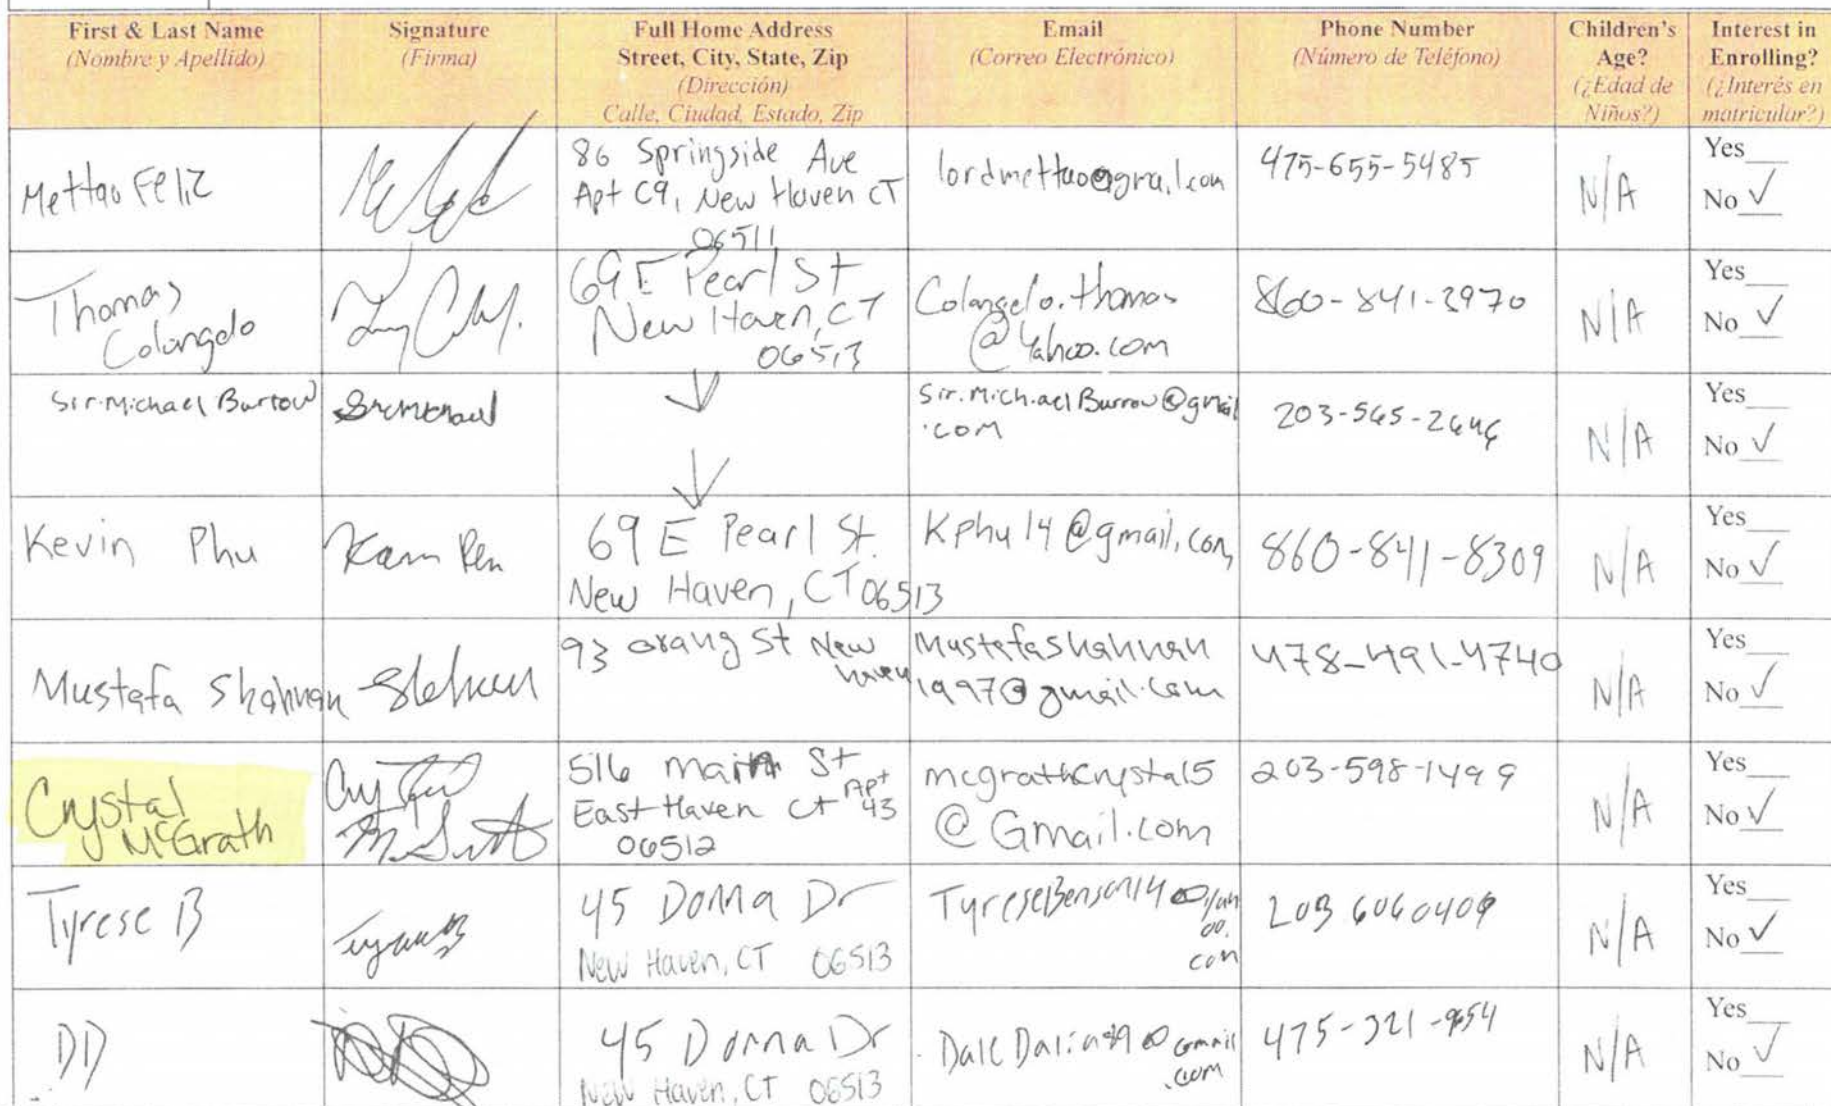 First & Last Name
(Nombre y Apellido)
Signature
(Firma)
Full Home Address
Street, City, State, Zip
(Dirección)
Calle, Ciudad, Estado, Zip
Email
(Correo Electrónico)
Phone Number
(Número de Teléfono)
Children's
Age?
(¿Edad de
Niños?)
Interest in
Enrolling?
(¿Interés en
matricular?)
Mettao Feliz
86 Springside Ave
Apt C9, New Haven CT
06511
lordmettao@gmail.com
475-655-5485
N/A
Yes
No ✓
Thomas
Colangelo
69 E Pearl St
New Haven, CT
06513
Colangelo.thomas
@Yahoo.com
860-841-3970
N/A
Yes
No ✓
Sir.Michael Burrow
↓
↓
Sir.MichaelBurrow@gmail
.com
203-565-2646
N/A
Yes
No ✓
Kevin Phu
69 E Pearl St.
New Haven, CT 06513
Kphu14@gmail.com
860-841-8309
N/A
Yes
No ✓
Mustafa Shahnan
93 orang St New
haven
Mustafashahnan
1997@gmail.com
478-491-4740
N/A
Yes
No ✓
Crystal
McGrath
516 main St
East Haven ct Apt 43
06512
mcgrathcrystal5
@Gmail.com
203-598-1499
N/A
Yes
No ✓
Tyrese B
45 Donna Dr
New Haven, CT 06513
TyreseBenson14@yah
oo.
com
203 606 0409
N/A
Yes
No ✓
DD
45 Donna Dr
New Haven, CT 06513
@gmail
.com
475-321-9654
N/A
Yes
No ✓